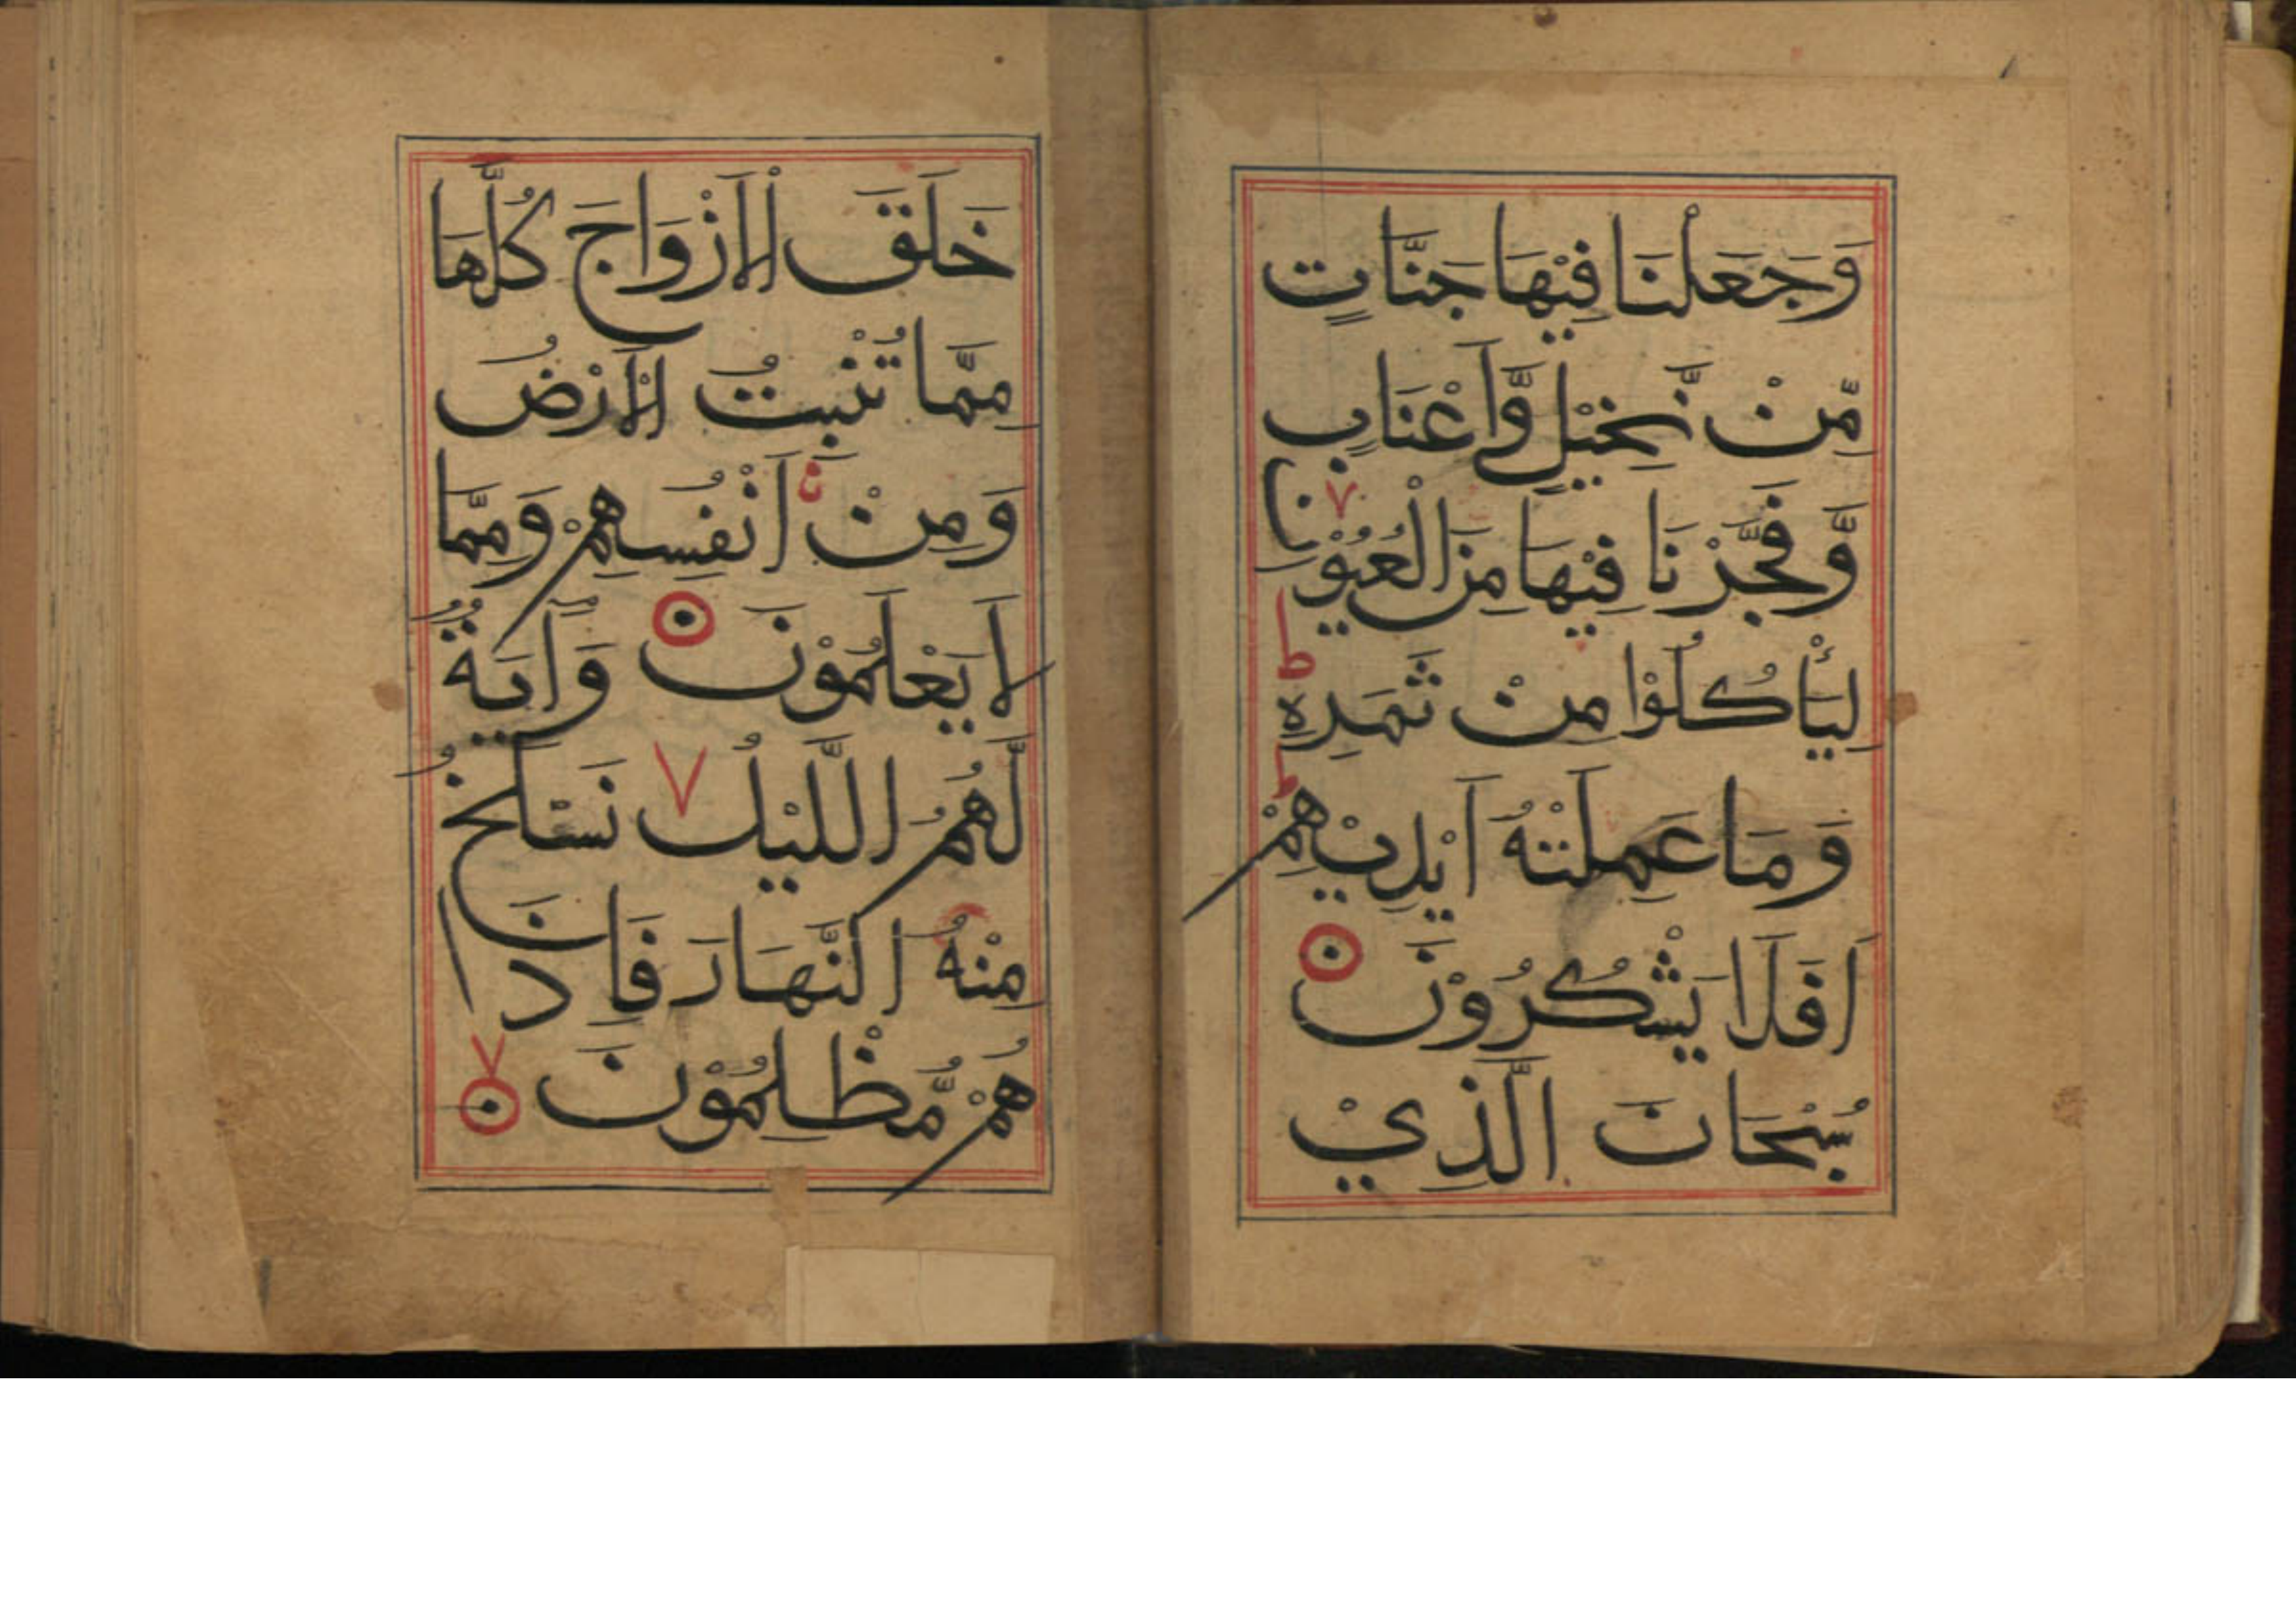 وَجَعَلْنَا فِيْهَا جَنَّاتٍ
مِّنْ نَّخِيْلٍ وَّاَعْنَابٍ
وَّفَجَّرْنَا فِيْهَا مِنَ الْعُيُوْنِ ٧
لِيَأْكُلُوْا مِنْ ثَمَرِهٖ ط
وَمَا عَمِلَتْهُ اَيْدِيْهِمْ ط
اَفَلَا يَشْكُرُوْنَ
سُبْحَانَ الَّذِيْ
خَلَقَ الْاَزْوَاجَ كُلَّهَا
مِمَّا تُنْبِتُ الْاَرْضُ
وَمِنْ اَنْفُسِهِمْ وَمِمَّا
لَا يَعْلَمُوْنَ وَاٰيَةٌ
لَّهُمُ اللَّيْلُ ٧ نَسْلَخُ
مِنْهُ النَّهَارَ فَاِذَا
هُمْ مُّظْلِمُوْنَ ٧